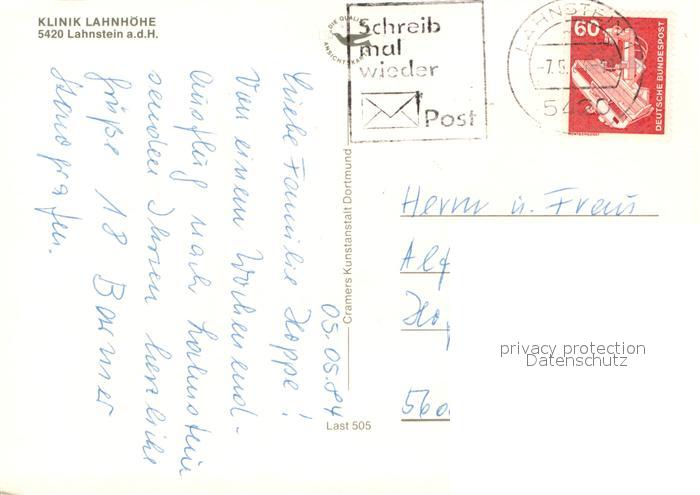 KLINIK LAHNHÖHE
5420 Lahnstein a.d.H.
DIE QUALITÄTS
ANSICHTSKARTE
Schreib
mal
wieder
Post
LAHNSTEIN
-7.5.
5420
60
DEUTSCHE BUNDESPOST
05.05.84
Liebe Familie Hoppe!
Von einem Wochenend-
ausflug nach Lahnstein
senden Ihnen herzliche
Grüße 18 Barmer
Stenografen.
Cramers Kunstanstalt Dortmund
Last 505
Herrn u. Frau
Alf
Hop
560
privacy protection
Datenschutz